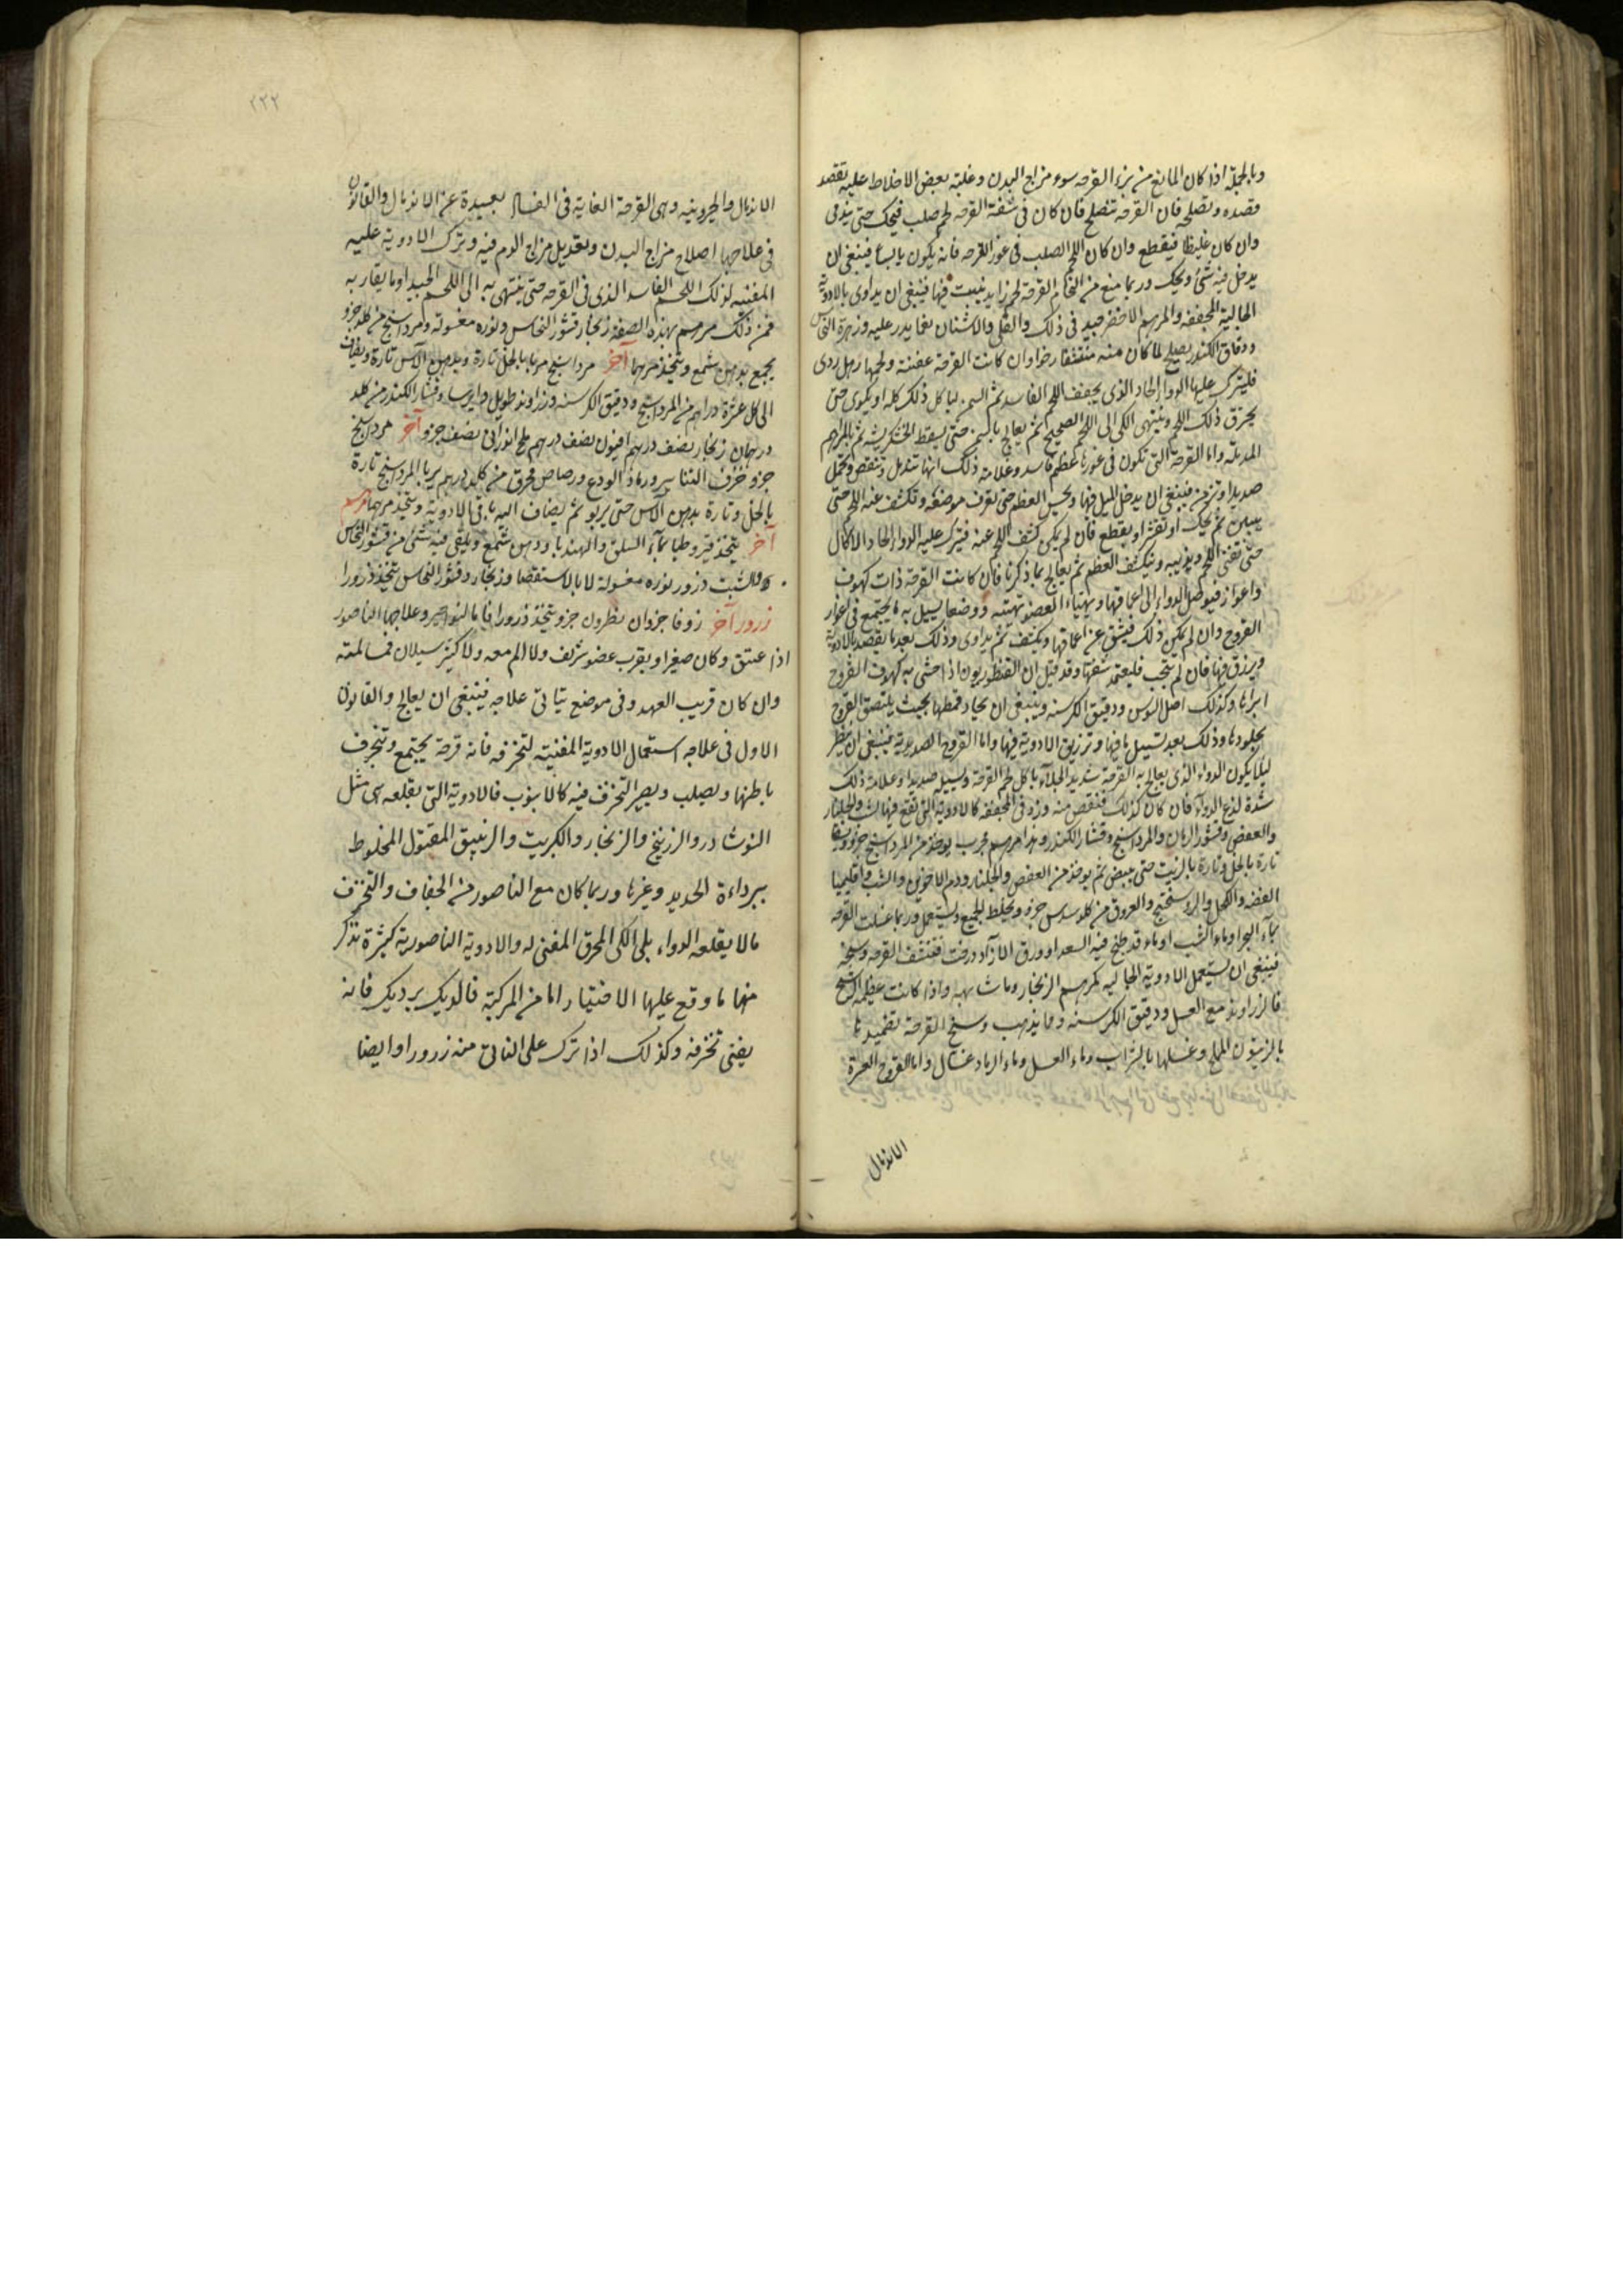 وبالجملة اذا كان المانع من برء القرحه سوء مزاج البدن وغلبة بعض الاخلاط عليه تقصد
قصده وتصلحه فان القرحه تنصلح فان كان فى شفة القرحه لحم صلب فيحك حتى يدمى
وان كان غليظا فيقطع وان كان اللحم الصلب فى غور القرحه فانه يكون يابسا فينبغى ان
يدخل فيه شئ ويحك وربما منع من التحام القرحة لحم زايد ينبت فيها فينبغى ان يداوى بالادوية
الجالية المجففه والمرهم الاخضر جيد فى ذلك والقلى والاشنان مما يذر عليه وزهرة النحاس
ودقاق الكندر يصلح لما كان منه منتفخا رخوا وان كانت القرحه عفنة ولحمها رهل ردى
فليترك عليها الدواء الحاد الذى يجفف اللحم الفاسد ثم السمن ليأكل ذلك كله او يكوى حتى
يحترق ذلك اللحم وينتهى الكى الى اللحم الصحيح ثم يعالج بالسمن حتى يسقط الخشكريشه ثم بالمراهم
المدملة واما القرحة التى تكون فى غورها عظم فاسد وعلامة ذلك انها تندمل وتنتقض وتحمل
صديدا وتزمن فينبغى ان يدخل الميل فيها ويجس العظم حتى يعرف موضعه وتكشف عنه اللحم حتى
يتبين ثم يحك او تقشر او يقطع فان لم يمكن كشف اللحم عنه فيترك عليه الدواء الحاد الاكال
حتى تفنى اللحم ويذيبه وينكشف العظم ثم يعالج بما ذكرنا فان كانت القرحة ذات كهوف
واغوار فيوصل الدواء الى اعماقها ويهياء العضو تهيئه ووضعا يسيل به ما يجتمع فى اغوار
القروح وان لم يمكن ذلك فيشق عن اعماقها ويكشف ثم يداوى وذلك بعد ما يقصد بالادوية
ويزرق فيها فان لم تنجب فليعتمد شقها وقد قيل ان القنطوريون اذا حشى به كهوف القروح
ابراها وكذلك اصل السوس ودقيق الكرسنه وينبغى ان يجاد قمطها بحيث يلتصق القروح
بجلودها وذلك بعد تسييل ما فيها وتزريق الادوية فيها واما القروح الصديدية فينبغى ان ينظر
ليلا يكون الدواء الذى يعالج به القرحة شديد الجلاء ياكل لحم القرحة ويسيله صديدا وعلامة ذلك
شدة لذع الدواء فان كان كذلك فنقص منه وزد فى المجففه كالادوية التى تقع فيها الشب والجلنار
والعفص وقشور الرمان والمرداسنج وقشار الكندر وهذا مرهم مجرب يوخذ من المرداسنج جزو ويسقا
تارة بالخل وتارة بالزيت حتى يبيض ثم يوخذ من العفص والجلنار ودم الاخوين والشب واقليميا
الفضه والكحل والروسختج والعروق من كل سدس جزو ويخلط الجميع ويستعمل وربما غسلت القرحه
بماء البحر او ماء الشب او ماء قد طبخ فيه السعد او ورق الازاد درخت فتنشف القرحه وسخه
فينبغى ان يستعمل الادوية الجاليه كمرهم الزنجار وما شابهه واذا كانت عظيمة الوسخ
فالزراوند مع العسل ودقيق الكرسنه ومما يذهب وسخ القرحة تضميدها
بالزيتون المملح وغسلها بالشراب وماء العسل وماء الرماد غسال واما القروح العسرة
الاندمال
٢٣٢
الاندمال والخيرونيه وهى القرحة الغاية فى الفساد بعيدة عن الاندمال والقانون
فى علاجها اصلاح مزاج البدن وتعديل مزاج الدم فيه وترك الادوية عليه
المفنيه لذلك اللحم الفاسد الذى فى القرحه حتى ينتهى به الى اللحم الجيد او ما يقاربه
فمن ذلك مرهم بهذه الصفه زنجار قشور النحاس ونوره مغسولة ومرداسنج من كل جزو
يجمع بدهن شمع ويتخذ مرهما آخر مرداسنج مربا بالخل تارة وبدهن الآس تارة ويضاف
الى كل عشرة دراهم من المرداسنج ودقيق الكرسنه وزراوند طويل وايرسا وقشار الكندر من كل
درهمان زنجار نصف درهم افيون نصف درهم ملح اندرانى نصف جزو آخر مرداسنج
جزو خزف التنانير ورماد الودع ورصاص محرق من كل درهم يربا المرداسنج تارة
بالخل وتارة بدهن الآس حتى يربو ثم يضاف اليه باقى الادوية ويتخذ مرهما مرهم
آخر يتخذ قيروطيا بماء السلق والهندبا ودهن شمع ويلقى فيه شئ من قشور النحاس
والشبت ذرور نوره مغسولة لا بالاستقصا وزنجار وقشور النحاس يتخذ ذرورا
ذرور آخر زوفا جزوان نطرون جزو يتخذ ذرورا فاما النواصير وعلاجها الناصور
اذا عتق وكان صغيرا وبقرب عضو شريف ولا الم معه ولا كثير سيلان فمسالمته
وان كان قريب العهد وفى موضع يتاتى علاجه فينبغى ان يعالج والقانون
الاول فى علاجه استعمال الادوية المفنية لتخزفه فانه قرحة يجتمع وتنجرف
باطنها ويصلب ويصير التخزف فيه كالانبوب فالادوية التى تقلعه هى مثل
النوشادر والزرنيخ والزنجار والكبريت والزيبق المقتول المخلوط
ببرادة الحديد وغيرها وربما كان مع الناصور من الجفاف والتخزف
مالا يقلعه الدواء بلى الكى المحرق المفنى له والادوية الناصورية كثيرة نذكر
منها ما وقع عليها الاختيار اما من المركبة فالديك برديك فانه
يفنى تخزفه وكذلك اذا ترك على الناتى منه زرورا وايضا